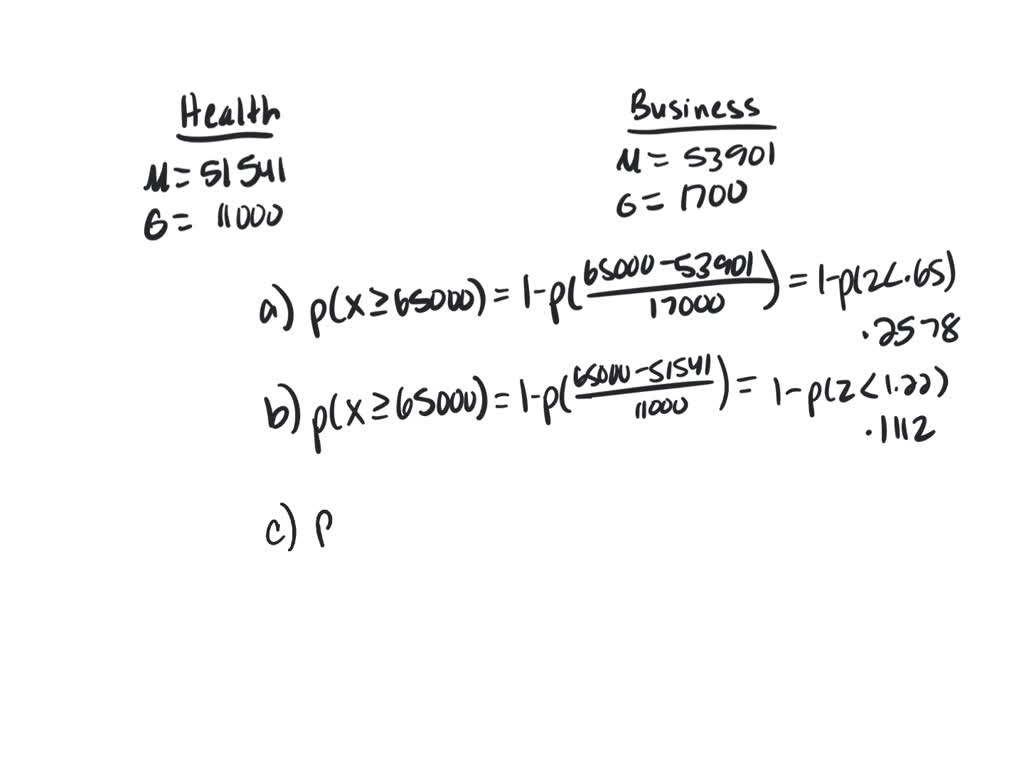 Health
M = 51541
σ = 11000
Business
M = 53901
σ = 1700
a) p(x ≥ 65000) = 1-p(65000-53901/17000) = 1-p(z<.65)
.2578
b) p(x ≥ 65000) = 1-p(65000-51541/11000) = 1-p(z<1.22)
.1112
c) p